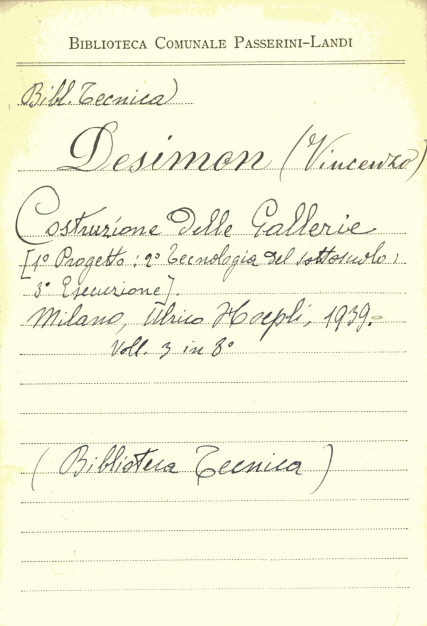 BIBLIOTECA COMUNALE PASSERINI-LANDI
Bibl. Tecnica
Desimon (Vincenzo)
Costruzione delle Gallerie
[1° Progetto; 2° Tecnologia del sottosuolo;
3° Esecuzione].
Milano, Ulrico Hoepli, 1939.
Voll. 3 in 8°
(Biblioteca Tecnica)